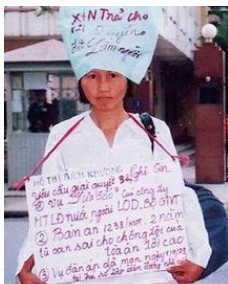 Xin Trả cho
tôi Quyền
Làm người
HỒ THỊ BÍCH KHƯƠNG Nghệ An
yêu cầu giải quyết 3
① vụ lừa đảo của công ty
HTLĐ nước ngoài LOD, Bộ GTVT
② Bản án 1238/HSPT. 2 năm
tù oan sai cho chồng tôi của
tòa án tối cao
③ vụ đàn áp dã man ngày